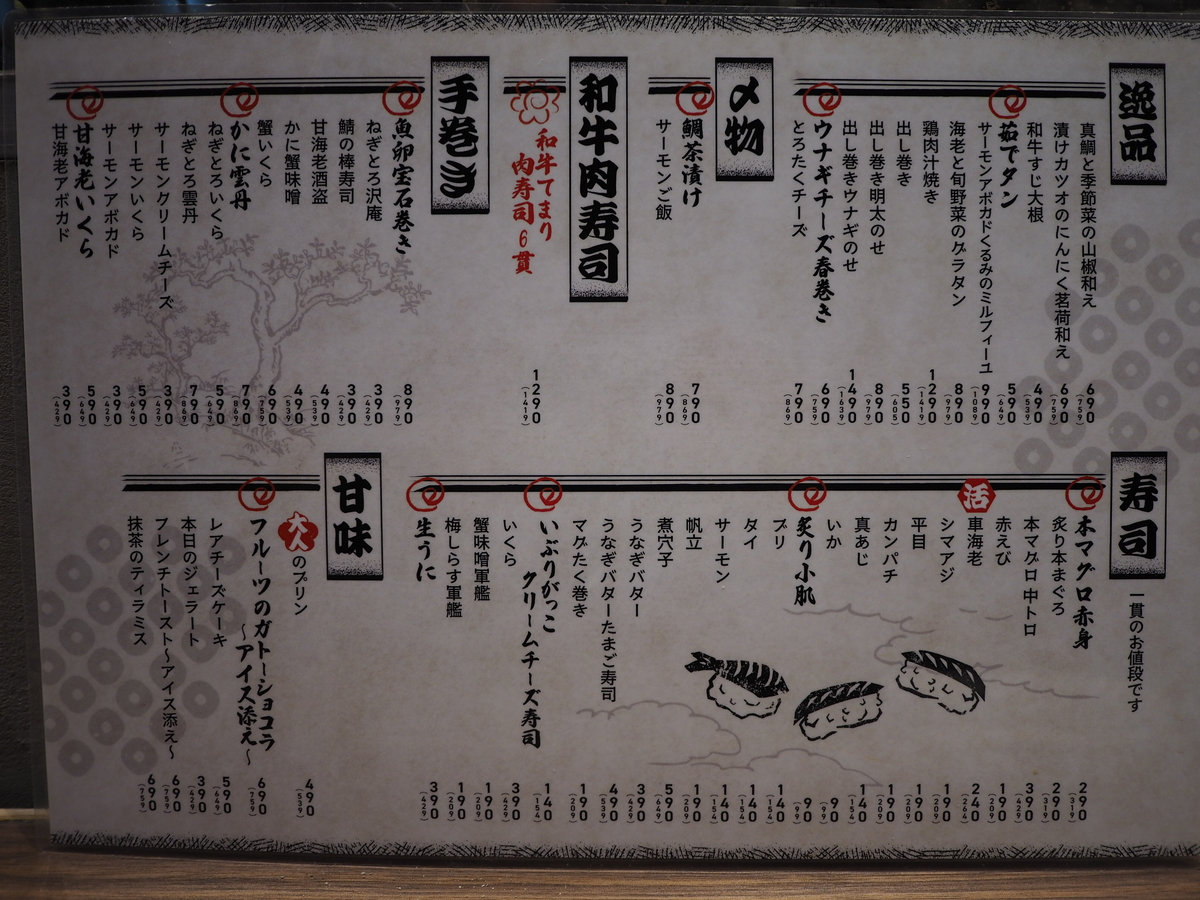 逸品
真鯛と季節菜の山椒和え 690 (759)
漬けカツオのにんにく茗荷和え 690 (759)
和牛すじ大根 490 (539)
茹でタン 590 (649)
サーモンアボカドくるみのミルフィーユ 990 (1089)
海老と旬野菜のグラタン 890 (979)
鶏肉汁焼き 1290 (1419)
出し巻き 550 (605)
出し巻き明太のせ 890 (979)
出し巻きウナギのせ 1490 (1639)
ウナギチーズ春巻き 690 (759)
とろたくチーズ 790 (869)
〆物
鯛茶漬け 790 (869)
サーモンご飯 890 (979)
和牛肉寿司
和牛てまり
肉寿司6貫 1290 (1419)
手巻き
魚卵宝石巻き 890 (979)
ねぎとろ沢庵 390 (429)
鯖の棒寿司 390 (429)
甘海老酒盗 490 (539)
かに蟹味噌 490 (539)
蟹いくら 690 (759)
かに雲丹 790 (869)
ねぎとろいくら 590 (649)
ねぎとろ雲丹 790 (869)
サーモンクリームチーズ 390 (429)
サーモンいくら 590 (649)
サーモンアボカド 390 (429)
甘海老いくら 590 (649)
甘海老アボカド 390 (429)
寿司
一貫のお値段です
本マグロ赤身 290 (319)
炙り本まぐろ 290 (319)
本マグロ中トロ 390 (429)
赤えび 190 (209)
活 車海老 240 (264)
シマアジ 190 (209)
平目 190 (209)
カンパチ 190 (209)
真あじ 140 (154)
いか 90 (99)
炙り小肌 90 (99)
ブリ 140 (154)
タイ 140 (154)
サーモン 140 (154)
帆立 190 (209)
煮穴子 590 (649)
うなぎバター 390 (429)
うなぎバターたまご寿司 490 (539)
マグたく巻き 190 (209)
いぶりがっこ
クリームチーズ寿司 140 (154)
いくら 390 (429)
蟹味噌軍艦 190 (209)
梅しらす軍艦 190 (209)
生うに 390 (429)
甘味
大人のプリン 490 (539)
フルーツのガトーショコラ
〜アイス添え〜 690 (759)
レアチーズケーキ 590 (649)
本日のジェラート 390 (429)
フレンチトースト〜アイス添え〜 690 (759)
抹茶のティラミス 690 (759)